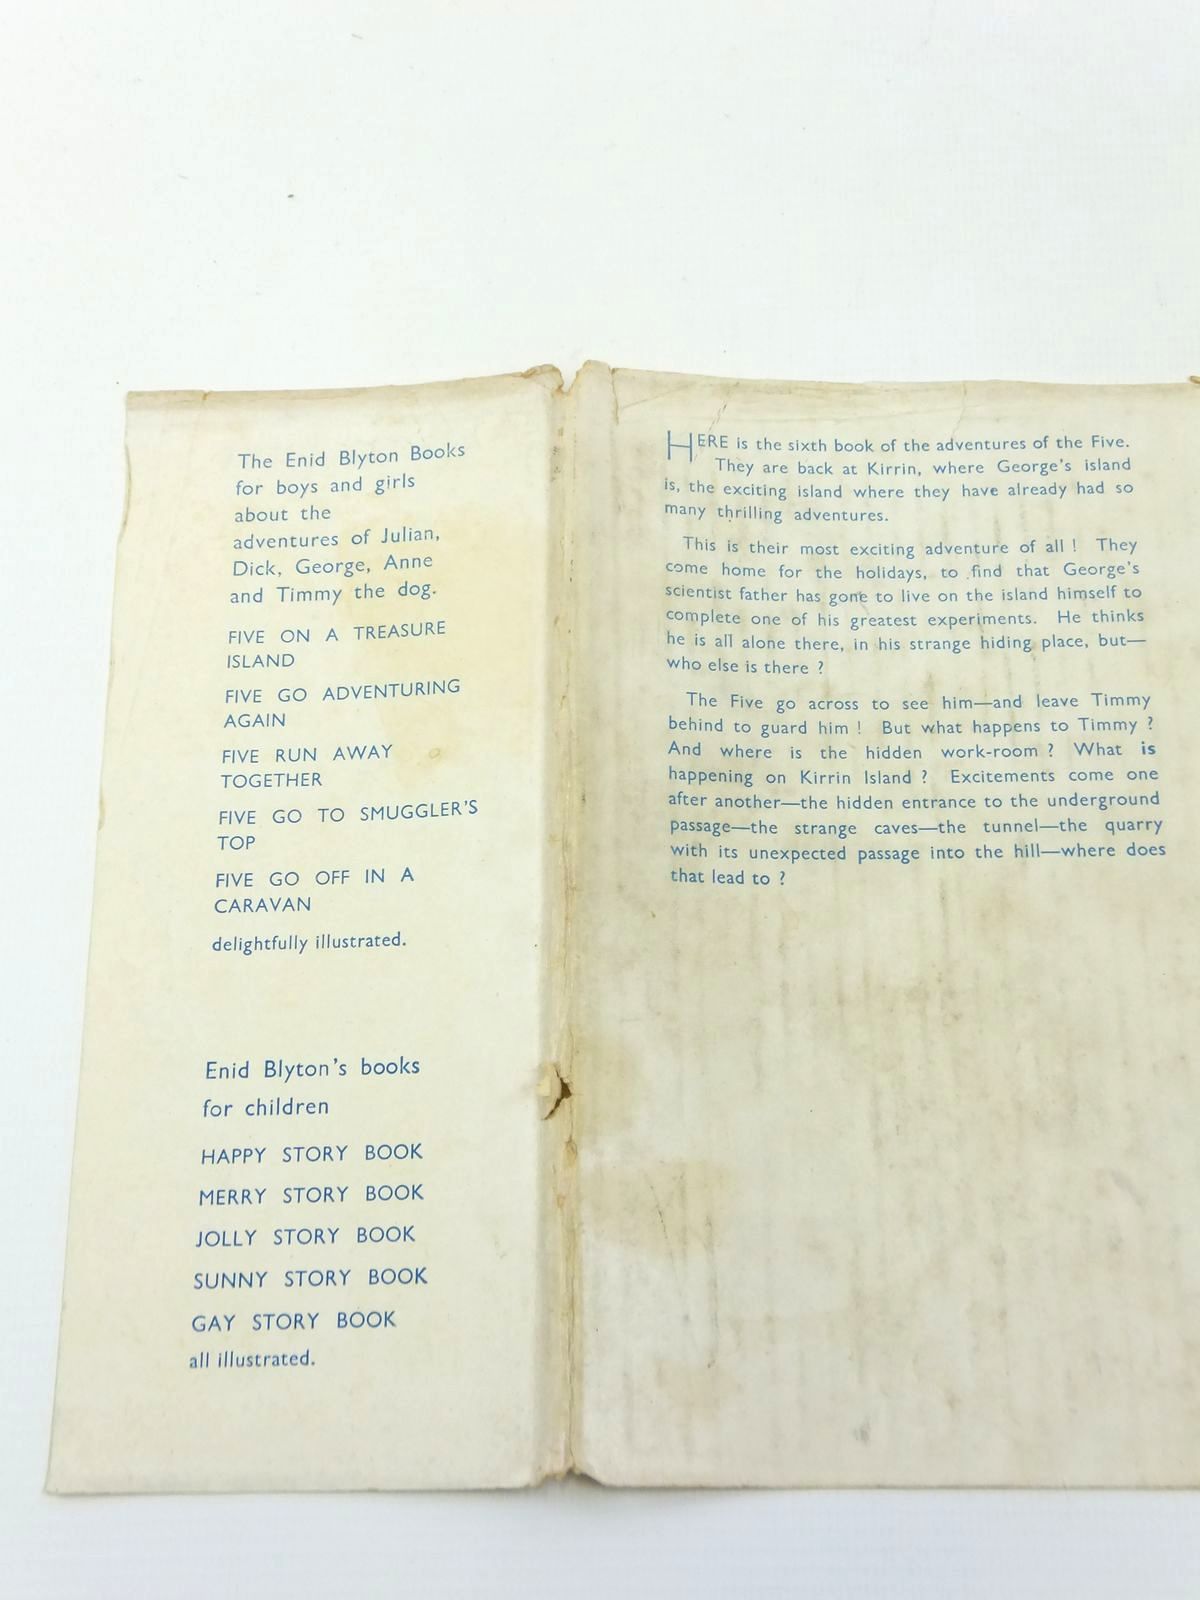 The Enid Blyton Books
for boys and girls
about the
adventures of Julian,
Dick, George, Anne
and Timmy the dog.
FIVE ON A TREASURE
ISLAND
FIVE GO ADVENTURING
AGAIN
FIVE RUN AWAY
TOGETHER
FIVE GO TO SMUGGLER'S
TOP
FIVE GO OFF IN A
CARAVAN
delightfully illustrated.
Enid Blyton's books
for children
HAPPY STORY BOOK
MERRY STORY BOOK
JOLLY STORY BOOK
SUNNY STORY BOOK
GAY STORY BOOK
all illustrated.
HERE is the sixth book of the adventures of the Five.
They are back at Kirrin, where George's island
is, the exciting island where they have already had so
many thrilling adventures.
This is their most exciting adventure of all ! They
come home for the holidays, to find that George's
scientist father has gone to live on the island himself to
complete one of his greatest experiments. He thinks
he is all alone there, in his strange hiding place, but—
who else is there ?
The Five go across to see him—and leave Timmy
behind to guard him ! But what happens to Timmy ?
And where is the hidden work-room ? What is
happening on Kirrin Island ? Excitements come one
after another—the hidden entrance to the underground
passage—the strange caves—the tunnel—the quarry
with its unexpected passage into the hill—where does
that lead to ?